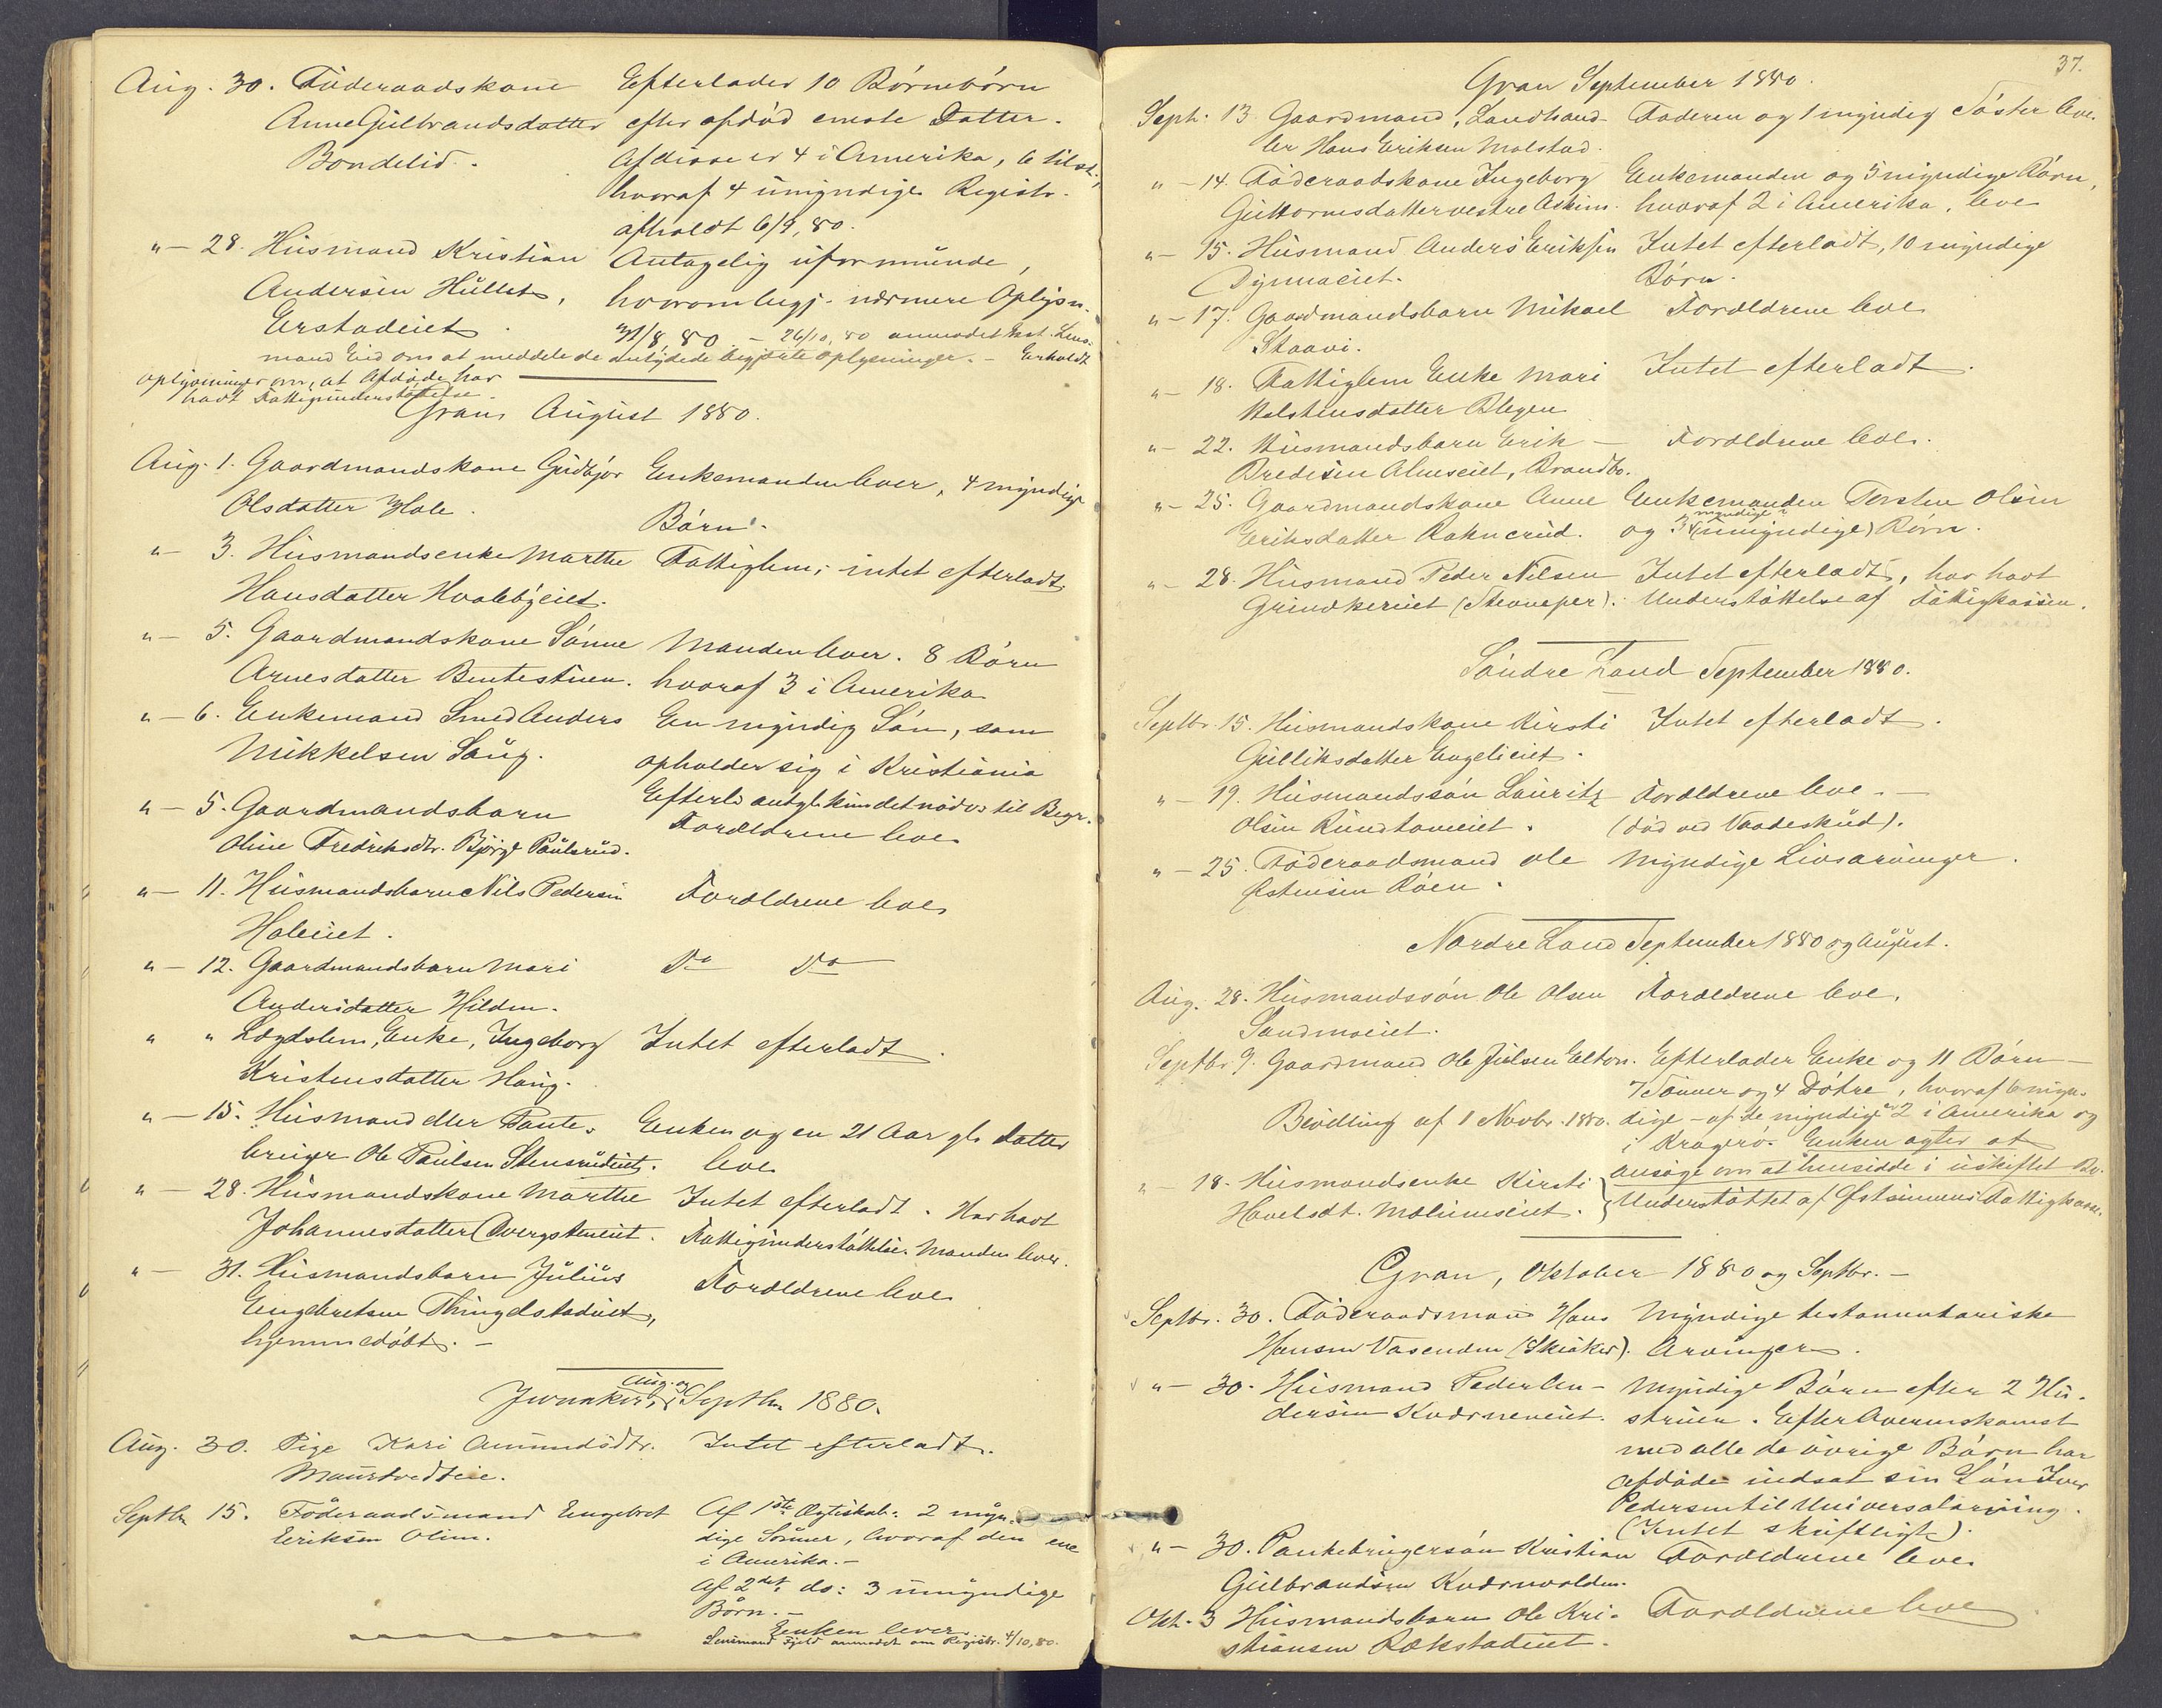 Aug. 30. Föderaadskone Efterlader 10 Börnebörn
Anne Gulbrandsdatter efter afdöd eneste Datter.
Bondelid. Af disse er 4 i Amerika, 6 tilst.,
hvoraf 4 umyndige Registr.
afholdt 6/9, 80.
" — 28. Husmand Kristian Antagelig uformuende,
Andersen Hullet, hvorom begj. nærmere Oplysn.
Erstadeiet. 31/8, 80. — 26/10, 80 anmodet Lens-
mand Eid om at meddele de antydede begjærte Oplysninger. — Erholdt
oplysninger om, at Afdøde har
havt Fattigunderstøttelse.
Gran August 1880.
Aug. 1. Gaardmandskone Gudbjör Enkemanden lever, 4 myndige
Olsdatter Hole. Börn.
" — 3. Husmandsenke Marthe Fattiglem; intet efterladt
Hansdatter Hvalebyeiet.
" — 5. Gaardmandskone Sönne Manden lever. 8 Börn
Arnesdatter Bentestuen. hvoraf 3 i Amerika
" — 6. Enkemand Smed Anders En myndig Sön, som
Mikkelsen Haug. opholder sig i Kristiania
Efterl. antgl. kun det nödv. til Begr.
" — 5. Gaardmandsbarn Forældrene leve
Oline Fredriksdtr. Björge Paulsrud.
" — 11. Husmandsbarn Nils Pedersen Forældrene leve
Holeeiet.
" — 12. Gaardmandsbarn Mari Do Do
Andersdatter Hilden.
" " Lægdslem, Enke, Ingeborg Intet efterladt.
Kristensdatter Haug.
" — 15. Husmand eller Pante- Enken og en 21 Aar gl. Datter
bruger Ole Paulsen Stensrudeiet. leve
" — 28. Husmandskone Marthe Intet efterladt. Har havt
Johannesdatter Fattigunderstöttelse. Manden lever.
" — 31. Husmandsbarn Julius Forældrene leve
Engebretsen Thingelstadeiet,
hjemmedöbt. —
Jevnaker, Aug. og Septbr. 1880.
Aug. 30. Pige Kari Amundsdtr. Intet efterladt.
Maurtvedteie.
Septbr. 15. Föderaadsmand Engebret Af 1ste Ægteskab: 2 myn-
Eriksen Olim. dige Sönner, hvoraf den ene
i Amerika. —
Af 2det do: 3 umyndige
Börn. —
Enken lever.
Lensmand Fjeld anmodet om Registr. 4/10, 80.
37.
Gran September 1880.
Septr. 13. Gaardmand, Landhand- Faderen og 1 myndig Söster leve.
ler Hans Eriksen Molstad.
" — 14. Föderaadskone Ingeborg Enkemanden og 5 myndige Börn,
Guttormsdatter vestre Askim. hvoraf 2 i Amerika, leve
" — 15. Husmand Anders Eriksen Intet efterladt, 10 myndige
Dynnaeiet. Börn.
" — 17. Gaardmandsbarn Mikael Forældrene leve
Skaavi.
" — 18. Fattiglem Enke Mari Intet efterladt.
Halstensdatter Blegen
" — 22. Husmandsbarn Erik — Forældrene leve.
Bredesen Almseiet, Brandbo.
" — 25. Gaardmandskone Anne Enkemanden Torsten Olsen
Eriksdatter Raknerud. og 3 myndige (4 umyndige) Börn.
" — 28. Husmand Peder Nilsen Intet efterladt, har havt
Grindkereiet (Stenneper). Understöttelse af Fattigkassen.
Söndre Land September 1880.
Septbr. 15. Husmandskone Kirsti Intet efterladt.
Gulliksdatter Engelieiet.
" — 19. Husmandssön Lauritz Forældrene leve. —
Olsen Rundtomeiet. (död ved Vaadeskud).
" — 25. Föderaadsmand Ole Myndige Livsarvinger.
Østensen Röen.
Nordre Land September 1880 og August.
Aug. 28. Husmandssön Ole Olsen Forældrene leve.
Sandmoeiet.
Septbr. 9. Gaardmand Ole Julsen Elton. Efterlader Enke og 11 Börn —
7 Sönner og 4 Dötre, hvoraf 6 myn-
Bevilling af 1 Novbr. 1880. dige — af de myndige er 2 i Amerika og
i Kragerö. Enken agter at
ansöge om at hensidde i uskiftet Bo.
" — 18. Husmandsenke Kirsti Understöttet af Østsinnens Fattigkasse.
Havelsdt. Mælumseiet.
Gran, Oktober 1880 og Septbr. —
Septbr. 30. Föderaadsmand Hans Myndige testamentariske
Hansen Vasenden (Skiaker). Arvinger.
" — 30. Husmand Peder An- Myndige Börn efter 2 Hu-
dersen Kværneneiet. struer. Efter Overenskomst
med alle de övrige Börn har
Afdöde indsat sin Sön Iver
Pedersen til Universalarving.
(Intet skriftligt).
" — 30. Pantebrugersön Kristian Forældrene leve
Gulbrandsen Kværnvolden.
Okt. 3 Husmandsbarn Ole Kri- Forældrene leve
stiansen Rækstadeiet.